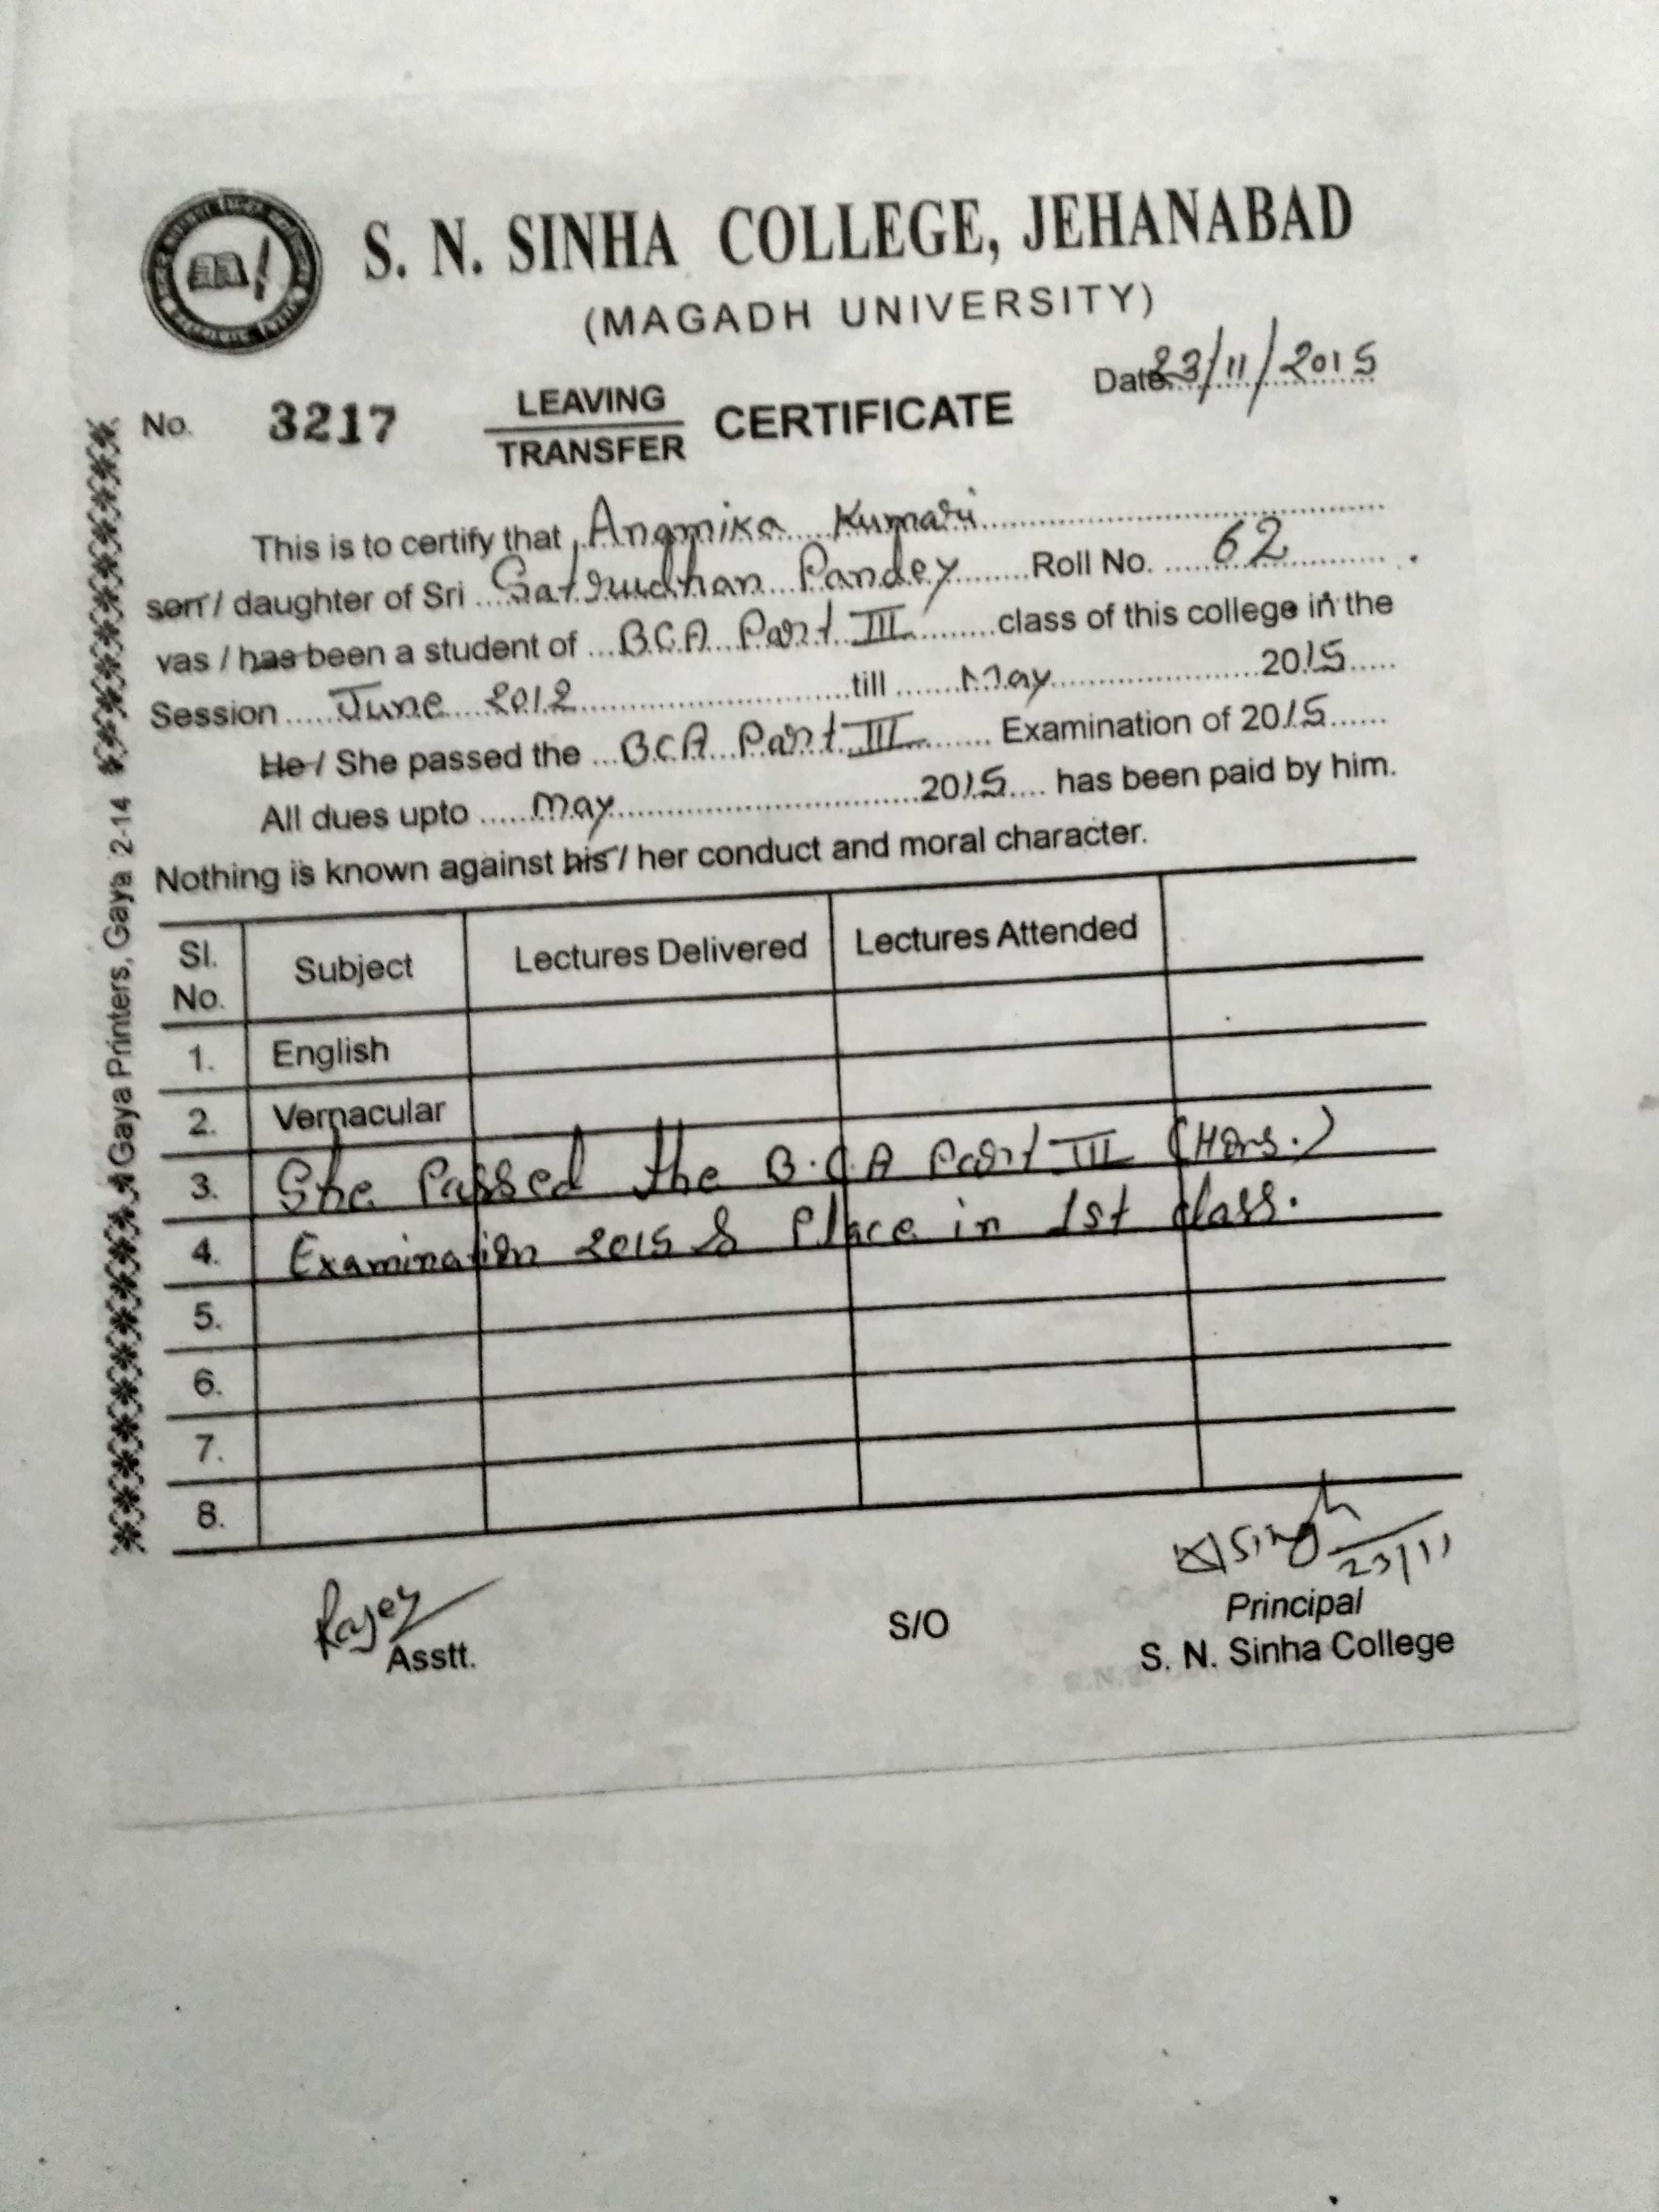 S. N. SINHA COLLEGE, JEHANABAD
(MAGADH UNIVERSITY)
Date 23/11/2015
No. 3217 LEAVING / TRANSFER CERTIFICATE
This is to certify that Anamika Kumari
son / daughter of Sri Satrudhan Pandey Roll No. 62
vas / has been a student of BCA Part III class of this college in the
Session June 2012 till May 2015
He / She passed the BCA Part III Examination of 2015
All dues upto May 2015 has been paid by him.
Nothing is known against his / her conduct and moral character.
Sl. No. Subject Lectures Delivered Lectures Attended
1. English
2. Vernacular
3. She Passed the B.C.A Part III (Hons.)
4. Examination 2015 & Place in 1st class.
5.
6.
7.
8.
Singh 23/11
Asstt. S/O Principal
S. N. Sinha College
Gaya Printers, Gaya 2-14